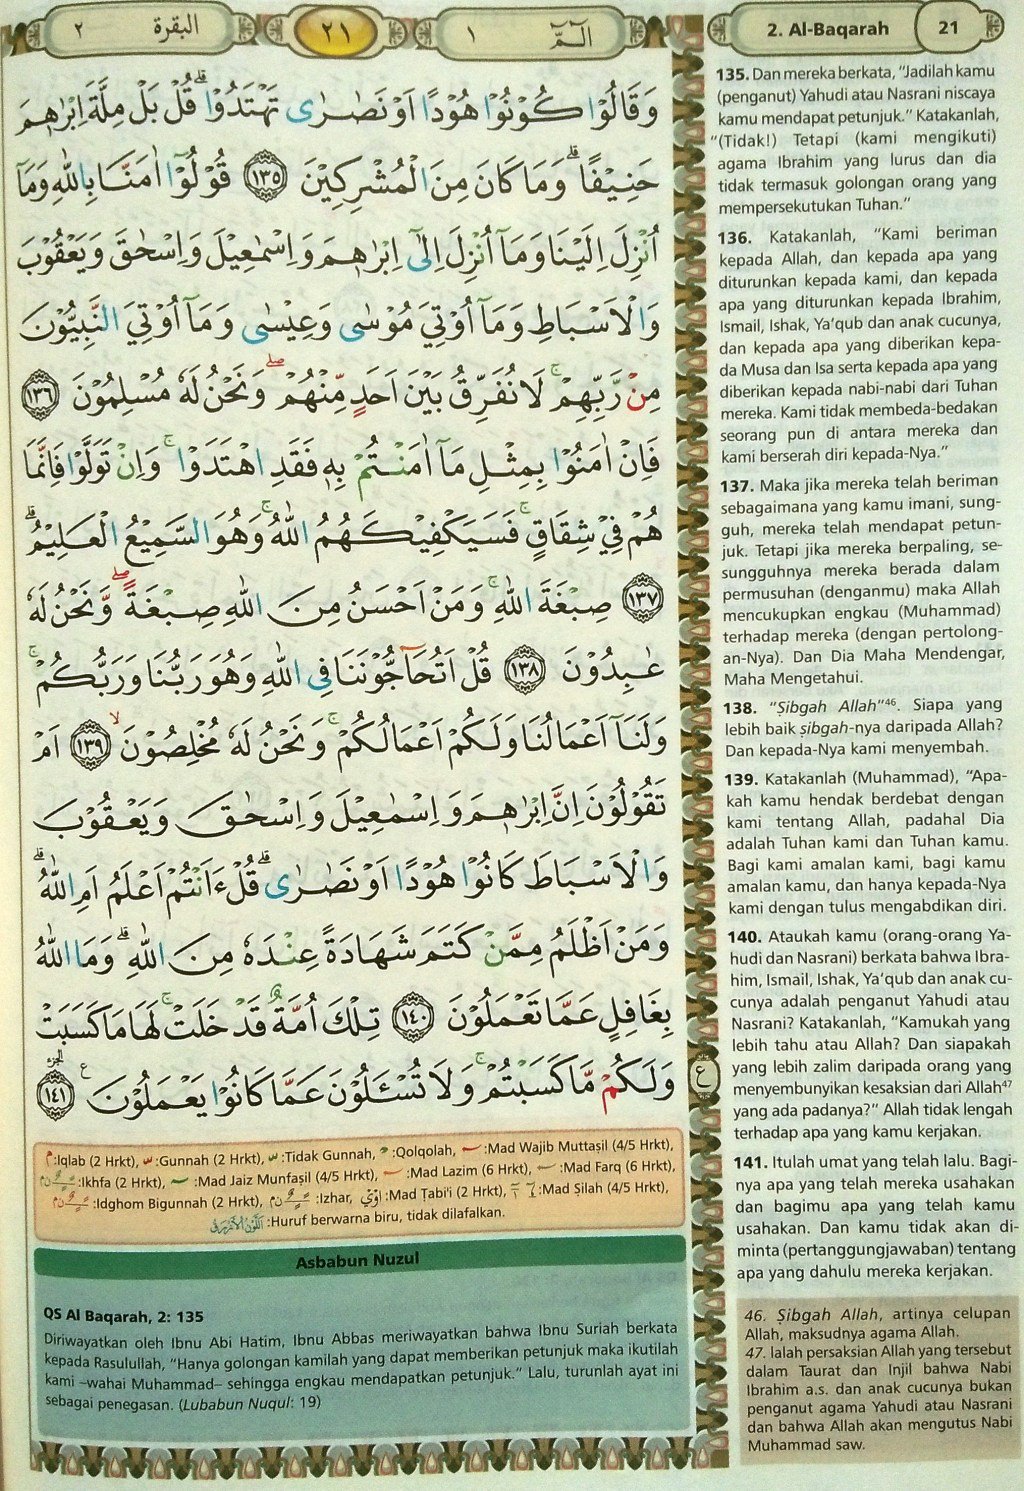 البقرة ٢
٢١
الٓمّٓ ١
2. Al-Baqarah
21
وَقَالُوْا كُوْنُوْا هُوْدًا اَوْ نَصٰرٰى تَهْتَدُوْاۗ قُلْ بَلْ مِلَّةَ اِبْرٰهٖمَ
حَنِيْفًاۗ وَمَا كَانَ مِنَ الْمُشْرِكِيْنَ ﴿١٣٥﴾ قُوْلُوْٓا اٰمَنَّا بِاللّٰهِ وَمَآ
اُنْزِلَ اِلَيْنَا وَمَآ اُنْزِلَ اِلٰٓى اِبْرٰهٖمَ وَاِسْمٰعِيْلَ وَاِسْحٰقَ وَيَعْقُوْبَ
وَالْاَسْبَاطِ وَمَآ اُوْتِيَ مُوْسٰى وَعِيْسٰى وَمَآ اُوْتِيَ النَّبِيُّوْنَ
مِنْ رَّبِّهِمْۚ لَا نُفَرِّقُ بَيْنَ اَحَدٍ مِّنْهُمْۖ وَنَحْنُ لَهٗ مُسْلِمُوْنَ ﴿١٣٦﴾
فَاِنْ اٰمَنُوْا بِمِثْلِ مَآ اٰمَنْتُمْ بِهٖ فَقَدِ اهْتَدَوْاۚ وَاِنْ تَوَلَّوْا فَاِنَّمَا
هُمْ فِيْ شِقَاقٍۚ فَسَيَكْفِيْكَهُمُ اللّٰهُۚ وَهُوَ السَّمِيْعُ الْعَلِيْمُۗ
﴿١٣٧﴾ صِبْغَةَ اللّٰهِۚ وَمَنْ اَحْسَنُ مِنَ اللّٰهِ صِبْغَةًۖ وَّنَحْنُ لَهٗ
عٰبِدُوْنَ ﴿١٣٨﴾ قُلْ اَتُحَاۤجُّوْنَنَا فِى اللّٰهِ وَهُوَ رَبُّنَا وَرَبُّكُمْۚ
وَلَنَآ اَعْمَالُنَا وَلَكُمْ اَعْمَالُكُمْۚ وَنَحْنُ لَهٗ مُخْلِصُوْنَۙ ﴿١٣٩﴾ اَمْ
تَقُوْلُوْنَ اِنَّ اِبْرٰهٖمَ وَاِسْمٰعِيْلَ وَاِسْحٰقَ وَيَعْقُوْبَ
وَالْاَسْبَاطَ كَانُوْا هُوْدًا اَوْ نَصٰرٰىۗ قُلْ ءَاَنْتُمْ اَعْلَمُ اَمِ اللّٰهُۗ
وَمَنْ اَظْلَمُ مِمَّنْ كَتَمَ شَهَادَةً عِنْدَهٗ مِنَ اللّٰهِۗ وَمَا اللّٰهُ
بِغَافِلٍ عَمَّا تَعْمَلُوْنَ ﴿١٤٠﴾ تِلْكَ اُمَّةٌ قَدْ خَلَتْۚ لَهَا مَا كَسَبَتْ
وَلَكُمْ مَّا كَسَبْتُمْۚ وَلَا تُسْـَٔلُوْنَ عَمَّا كَانُوْا يَعْمَلُوْنَ ﴿١٤١﴾
ع
الجزء
:Iqlab (2 Hrkt), :Gunnah (2 Hrkt), :Tidak Gunnah, :Qolqolah, :Mad Wajib Muttaṣil (4/5 Hrkt),
:Ikhfa (2 Hrkt), :Mad Jaiz Munfaṣil (4/5 Hrkt), :Mad Lazim (6 Hrkt), :Mad Farq (6 Hrkt),
:Idghom Bigunnah (2 Hrkt), :Izhar, :Mad Ṭabi'i (2 Hrkt), :Mad Ṣilah (4/5 Hrkt),
:Huruf berwarna biru, tidak dilafalkan.
Asbabun Nuzul
QS Al Baqarah, 2: 135
Diriwayatkan oleh Ibnu Abi Hatim, Ibnu Abbas meriwayatkan bahwa Ibnu Suriah berkata
kepada Rasulullah, “Hanya golongan kamilah yang dapat memberikan petunjuk maka ikutilah
kami –wahai Muhammad– sehingga engkau mendapatkan petunjuk.” Lalu, turunlah ayat ini
sebagai penegasan. (Lubabun Nuqul: 19)
135. Dan mereka berkata, “Jadilah kamu
(penganut) Yahudi atau Nasrani niscaya
kamu mendapat petunjuk.” Katakanlah,
“(Tidak!) Tetapi (kami mengikuti)
agama Ibrahim yang lurus dan dia
tidak termasuk golongan orang yang
mempersekutukan Tuhan.”
136. Katakanlah, “Kami beriman
kepada Allah, dan kepada apa yang
diturunkan kepada kami, dan kepada
apa yang diturunkan kepada Ibrahim,
Ismail, Ishak, Ya‘qub dan anak cucunya,
dan kepada apa yang diberikan kepa-
da Musa dan Isa serta kepada apa yang
diberikan kepada nabi-nabi dari Tuhan
mereka. Kami tidak membeda-bedakan
seorang pun di antara mereka dan
kami berserah diri kepada-Nya.”
137. Maka jika mereka telah beriman
sebagaimana yang kamu imani, sung-
guh, mereka telah mendapat petun-
juk. Tetapi jika mereka berpaling, se-
sungguhnya mereka berada dalam
permusuhan (denganmu) maka Allah
mencukupkan engkau (Muhammad)
terhadap mereka (dengan pertolong-
an-Nya). Dan Dia Maha Mendengar,
Maha Mengetahui.
138. “Ṣibgah Allah”⁴⁶. Siapa yang
lebih baik ṣibgah-nya daripada Allah?
Dan kepada-Nya kami menyembah.
139. Katakanlah (Muhammad), “Apa-
kah kamu hendak berdebat dengan
kami tentang Allah, padahal Dia
adalah Tuhan kami dan Tuhan kamu.
Bagi kami amalan kami, bagi kamu
amalan kamu, dan hanya kepada-Nya
kami dengan tulus mengabdikan diri.
140. Ataukah kamu (orang-orang Ya-
hudi dan Nasrani) berkata bahwa Ibra-
him, Ismail, Ishak, Ya‘qub dan anak cu-
cunya adalah penganut Yahudi atau
Nasrani? Katakanlah, “Kamukah yang
lebih tahu atau Allah? Dan siapakah
yang lebih zalim daripada orang yang
menyembunyikan kesaksian dari Allah⁴⁷
yang ada padanya?” Allah tidak lengah
terhadap apa yang kamu kerjakan.
141. Itulah umat yang telah lalu. Bagi-
nya apa yang telah mereka usahakan
dan bagimu apa yang telah kamu
usahakan. Dan kamu tidak akan di-
minta (pertanggungjawaban) tentang
apa yang dahulu mereka kerjakan.
46. Ṣibgah Allah, artinya celupan
Allah, maksudnya agama Allah.
47. Ialah persaksian Allah yang tersebut
dalam Taurat dan Injil bahwa Nabi
Ibrahim a.s. dan anak cucunya bukan
penganut agama Yahudi atau Nasrani
dan bahwa Allah akan mengutus Nabi
Muhammad saw.